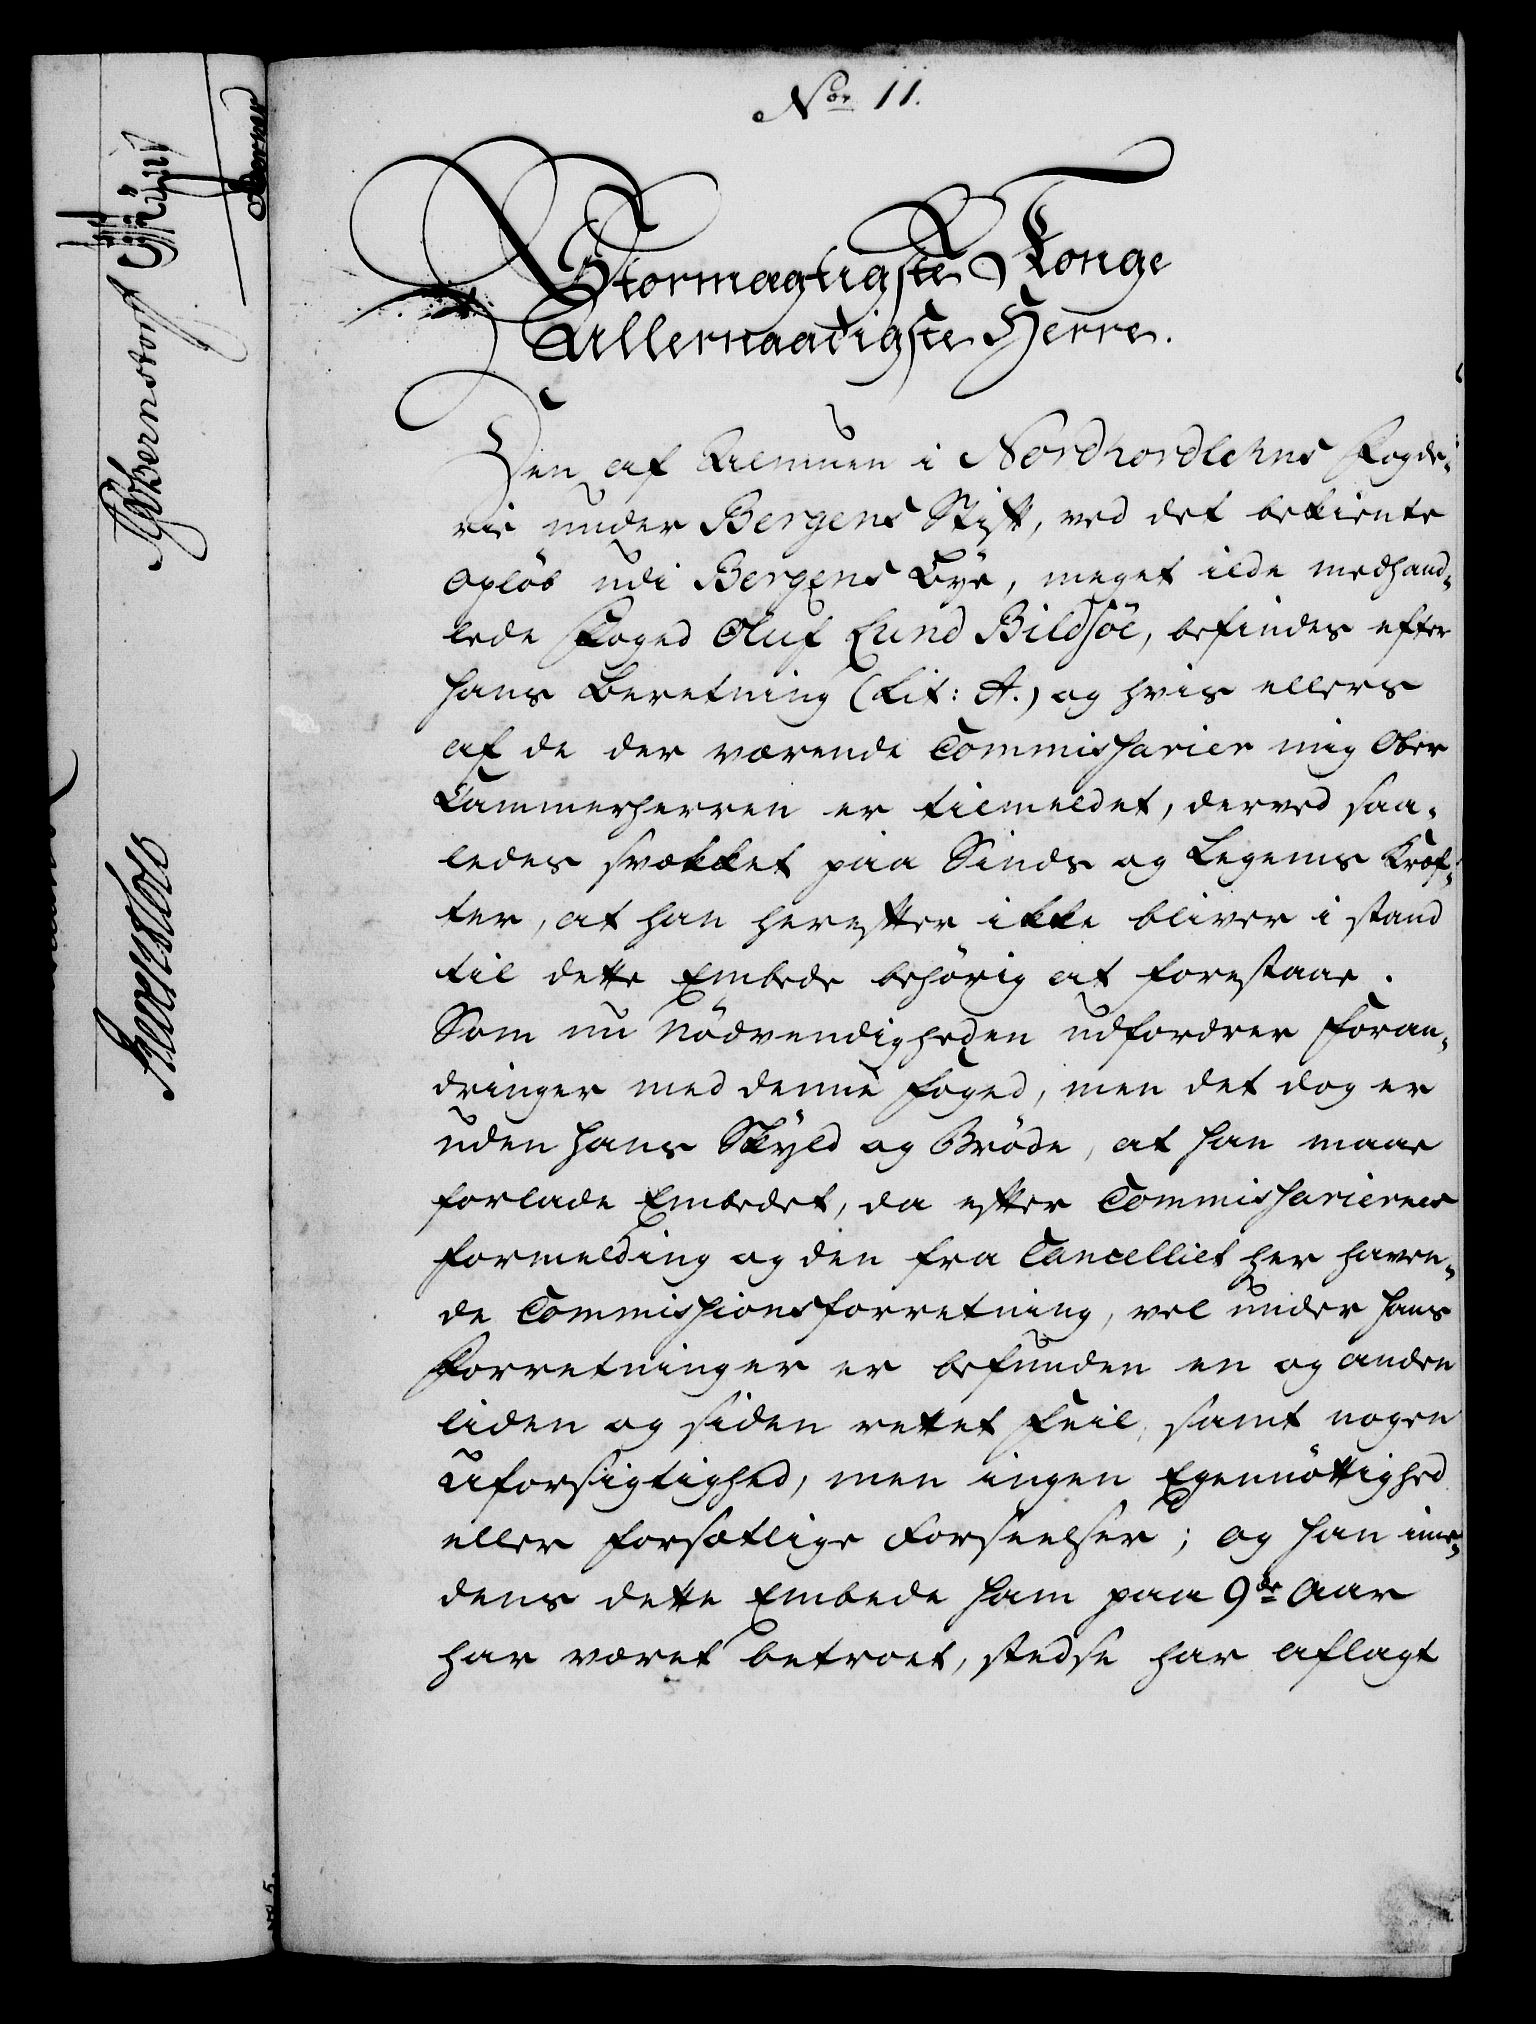 Nor 11.
Stormægtigste Konge
Allernaadigste Herre.
Den af Almuen i Nordhordlehns Fogde-
rie under Bergens Stift, ved det bekiente
Opløb udi Bergens Bye, meget ilde medhand-
lede Foged Oluf Lund Bildsøe, befindes efter
hans Beretning (Lit: A.) og hvis ellers
af de der værende Commissarier mig Ober
Kammerherren er tilmeldet, derved saa-
ledes svækket paa Sinds og Legems Kræf-
ter, at han herefter ikke bliver i stand
til dette Embede behørig at forestaae.
Som nu Nødvendigheden udfordrer Foran-
dringer med denne Foged, men det dog er
uden hans Skyld og Brøde, at han maae
forlade Embedet, da efter Commissariernes
formelding og den fra Cancelliet her haven-
de Commissionsforretning, vel under hans
Forretninger er befunden en og anden
liden og siden rettet Feil, samt nogen
Uforsigtighed, men ingen Egennøttighed
eller forsætlige Forseelser; og han ime-
dens dette Embede ham paa 9de Aar
har været betroet, stedse har aflagt